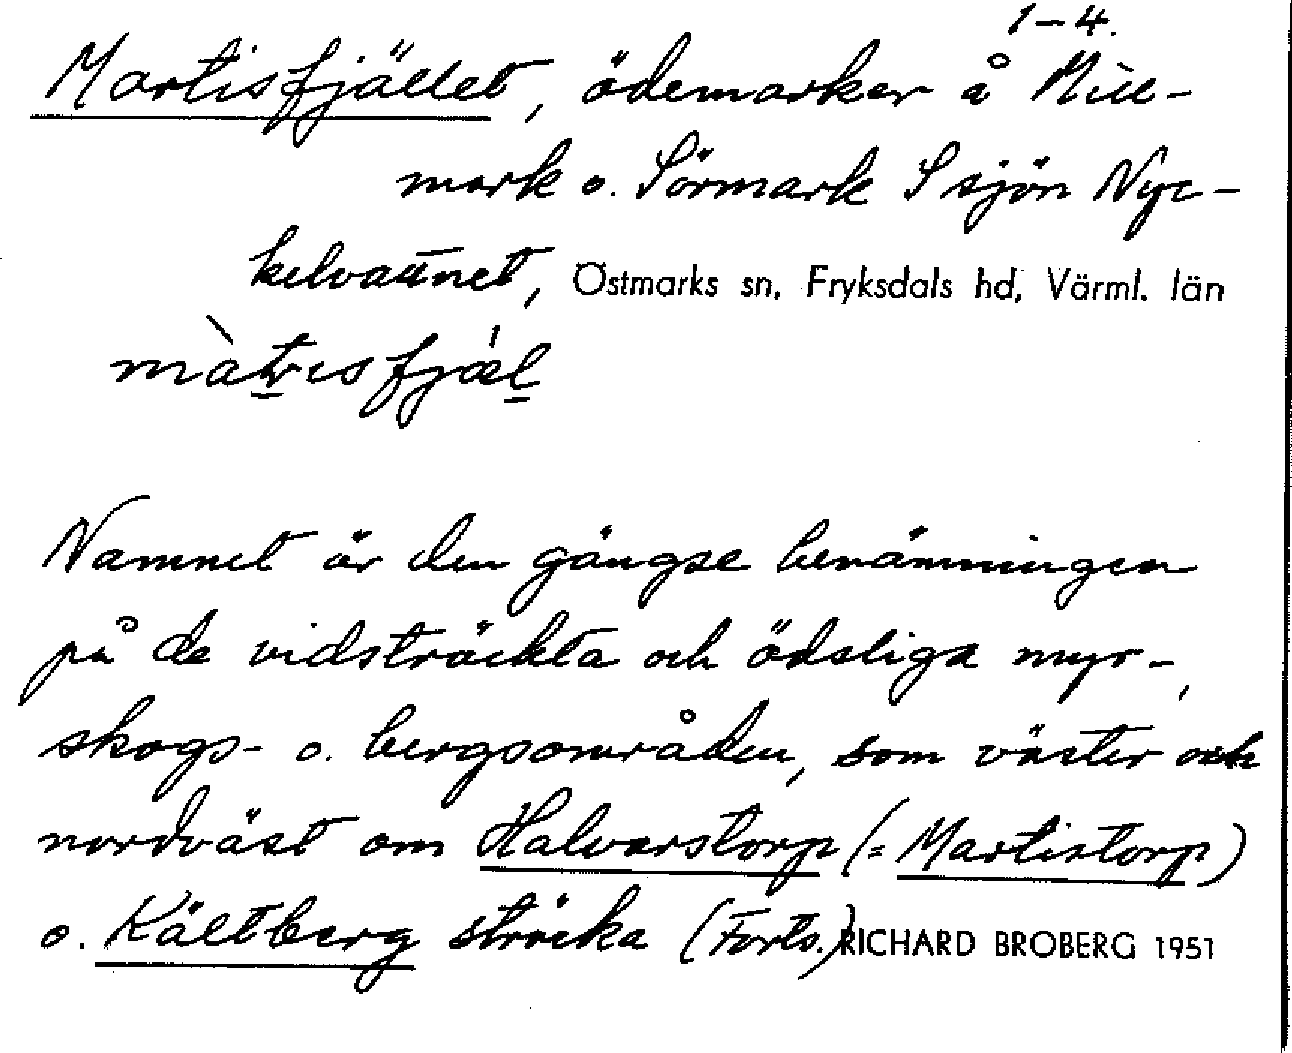 1–4.
Martisfjället, ödemarker å Mill-
mark o. Sörmark S sjön Nyc-
kelvattnet, Östmarks sn, Fryksdals hd, Värml. län
màtɩsfjǽl
Namnet är den gängse benämningen
på de vidsträckta och ödsliga myr-,
skogs- o. bergsområden, som väster och
nordväst om Halvarstorp (= Martistorp)
o. Kältberg sträcka (Forts.) RICHARD BROBERG 1951